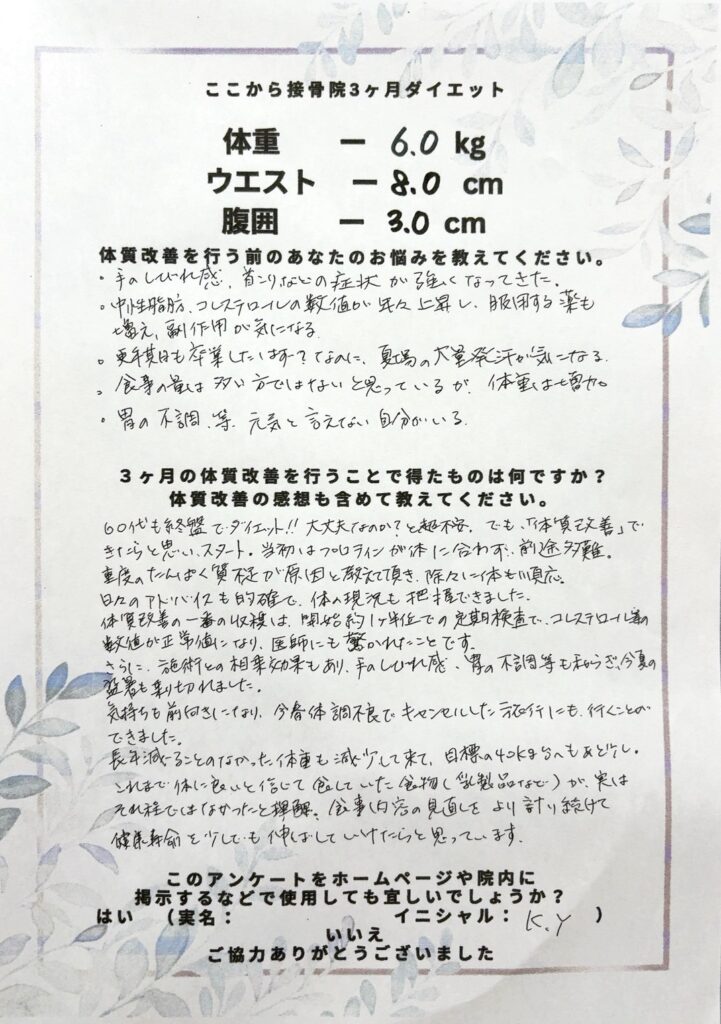 ここから接骨院3ヶ月ダイエット
体重 ー 6.0 kg
ウエスト ー 8.0 cm
腹囲 ー 3.0 cm
体質改善を行う前のあなたのお悩みを教えてください。
・手のしびれ感、首こりなどの症状が強くなってきた。
・中性脂肪、コレステロールの数値が年々上昇し、服用する薬も
増え、副作用が気になる
・更年期も卒業したはず?なのに、夏場の大量発汗が気になる
・食事の量は多い方ではないと思っているが、体重は増加
・胃の不調、等、元気と言えない自分がいる。
3ヶ月の体質改善を行うことで得たものは何ですか?
体質改善の感想も含めて教えてください。
60代も終盤でダイエット!!大丈夫なのか?と超不安。でも、「体質改善」で
きたらと思い、スタート。当初はプロティンが体に合わず、前途多難。
重度のたんぱく質不足が原因と教えて頂き、除々に体も順応。
日々のアドバイスも的確で、体の現況も把握できました。
体質改善の一番の収穫は、開始約1ヶ月位での定期検査で、コレステロール等の
数値が正常値になり、医師にも驚かれたことです。
さらに、施術との相乗効果もあり、手のしびれ感、胃の不調等も和らぎ、今夏の
猛暑も乗り切れました。
気持ちも前向きになり、今春体調不良でキャンセルした旅行にも、行くことが
できました。
長年減ることのなかった体重も減少して来て、目標の40k台へもあと少し。
これまで体に良いと信じて食していた食物(乳製品など)が、実は
それ程ではなかったと理解。食事内容の見直しをより計り続けて
健康寿命を少しでも伸ばしていけたらと思っています。
このアンケートをホームページや院内に
掲示するなどで使用しても宜しいでしょうか?
はい (実名: イニシャル: K.Y )
いいえ
ご協力ありがとうございました